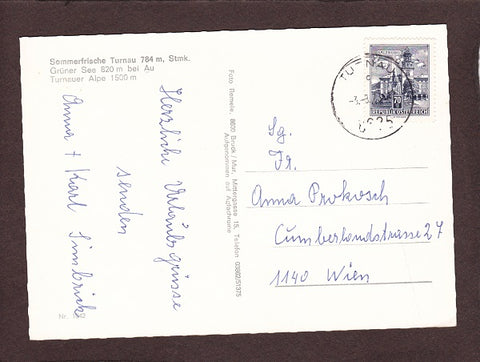 Sommerfrische Turnau 784 m, Stmk.
Grüner See 820 m bei Au
Turnauer Alpe 1500 m
Herzliche Urlaubsgrüsse
senden
Anna + Karl
Foto Remele, 8600 Bruck/Mur, Mittergasse 15, Telefon 03862/51375
Aufgenommen auf Agfachrome
TURNAU
8625
70
REPUBLIK ÖSTERREICH
Sg.
Fr.
Anna Prokosch
Cumberlandstrasse 27
1140 Wien
Nr.